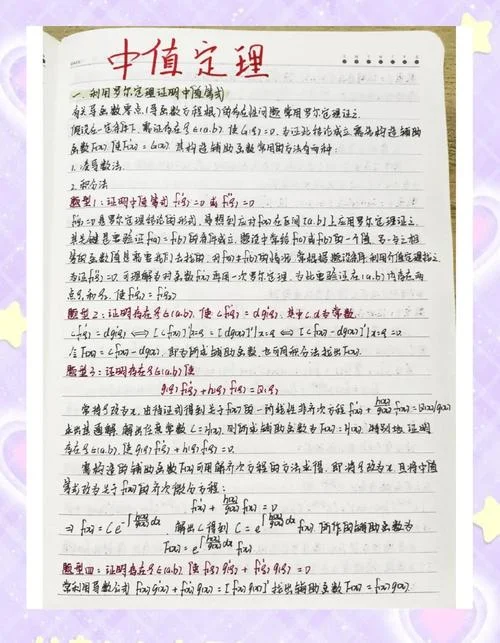 中值定理
一. 利用罗尔定理证明中值等式
有关导函数零点(导函数方程根)的存在性问题常用罗尔定理证之.
假设在一定条件下, 需证存在ξ∈(a,b), 使G(ξ)=0, 为证此结论成立, 需先构造辅助
函数F(x), 使F'(x)=G(x). 其构造辅助函数常用的方法有两种:
1. 凑导数法.
2. 积分法.
题型1: 证明中值等式 f'(ξ)=0 或 f''(ξ)=0
f'(ξ)=0是罗尔定理结论的形式, 易想到应对f(x)在区间[a,b]上应用罗尔定理证之.
其关键是要验证f(a)=f(b)的条件成立, 题设中常给f(a)或f(b)的一个值, 另一与之相
等的函数值是需要我们去找的, 对f(a)=f(b)的情况, 常根据题设条件, 利用介值定理找之.
为证f''(ξ)=0, 可理解为对函数f'(x)再用一次罗尔定理, 为此要验证在(a,b)内存在两
点ξ₁和ξ₂, 使f'(ξ₁)=f'(ξ₂)
题型2: 证明存在ξ∈(a,b), 使cf'(ξ)=dg'(ξ), 其中c,d为常数
cf'(ξ)=dg'(ξ) ⟺ [cf(x)]'|x=ξ=[dg(x)]'|x=ξ ⟺ [cf(x)-dg(x)]'|x=ξ=0
令F(x)=cf(x)-dg(x), 即为所求辅助函数, 也可用积分法找出F(x).
题型3: 证明存在ξ∈(a,b)使
g(ξ)f'(ξ)+h(ξ)f(ξ)=Q(ξ)
常将ξ改为x, 由待证式得到关于f(x)的一阶线性非齐次方程f'(x)+h(x)/g(x) f(x)=Q(x)/g(x)
求出其通解, 解出任意常数C=H(x), 则所求辅助函数为F(x)=H(x). 特别地, 证明
存在ξ∈(a,b), 使g(ξ)f'(ξ)+h(ξ)f(ξ)=0.
需构造的辅助函数F(x)可用解齐次方程的方法求得. 即将ξ改为x, 且将中值
等式改为关于f(x)的齐次微分方程:
f'(x)+h(x)/g(x) f(x)=0
⇒ f(x)=Ce^{-∫h(x)/g(x) dx} 解出C得到 C=e^{∫h(x)/g(x) dx} f(x), 所作的辅助函数为
F(x)=e^{∫h(x)/g(x) dx} f(x)
题型四: 证明存在ξ∈(a,b), 使f(ξ)g'(ξ)+f'(ξ)g(ξ)=0
常利用导数公式 f(x)g'(x)+f'(x)g(x)=[f(x)g(x)]' 找出辅助函数F(x)=f(x)g(x).